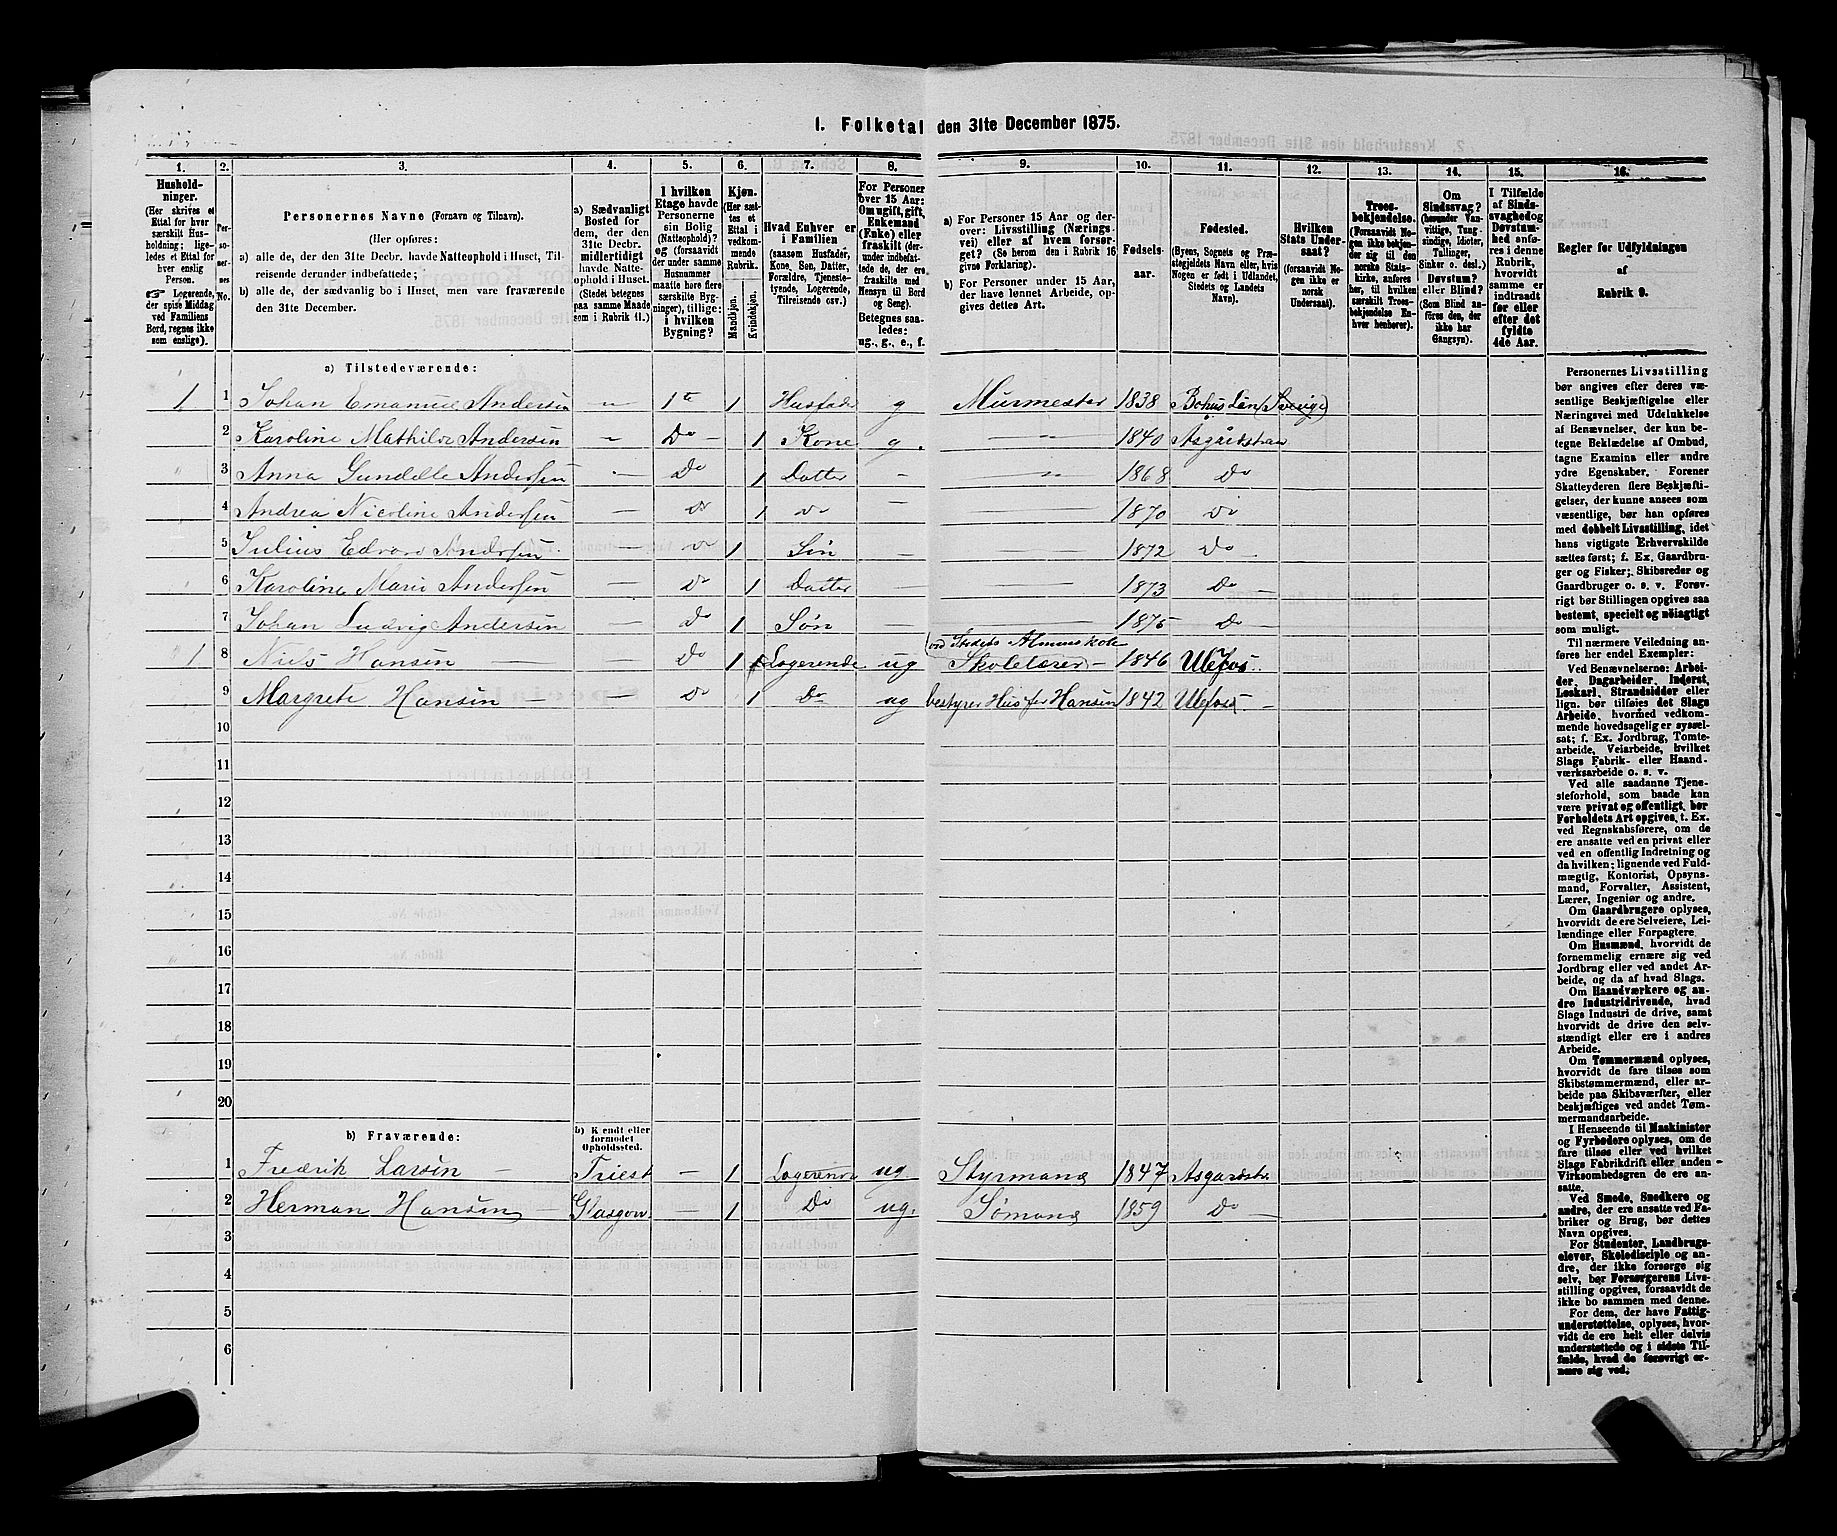 1. Folketal den 31te December 1875.
1. 2. 3. 4. 5. 6. 7. 8. 9. 10. 11. 12. 13. 14. 15. 16.
Hushold-
ninger.
(Her skrives et
Ettal for hver
særskilt Hus-
holdning; lige-
ledes et Ettal for
hver enslig
Person.
☞ Logerende,
der spise Middag
ved Familiens
Bord, regnes ikke
som enslige).
Per-
so-
ner-
nes
No.
Personernes Navne (Fornavn og Tilnavn).
(Her opføres:
a) alle de, der den 31te Decbr. havde Natteophold i Huset, Til-
reisende derunder indbefattede;
b) alle de, der sædvanlig bo i Huset, men vare fraværende
den 31te December.
a) Sædvanligt
Bosted for
dem, der den
31te Decbr.
midlertidigt
havde Natte-
ophold i Huset.
(Stedet betegnes
paa samme Maade
som i Rubrik 11.)
I hvilken
Etage havde
Personerne
sin Bolig
(Natteophold)?
og (forsaavidt
der under samme
Husnummer
maatte høre flere
særskilte Byg-
ninger), tillige:
i hvilken
Bygning?
Kjøn.
(Her sæt-
tes et
Ettal i
vedkom-
mende
Rubrik.
Mandkjøn.
Kvindekjøn.
Hvad Enhver er
i Familien
(saasom Husfader,
Kone, Søn, Datter,
Forældre, Tjeneste-
tyende, Logerende,
Tilreisende osv.)
For Personer
over 15 Aar:
Om ugift, gift,
Enkemand
(Enke) eller
fraskilt (der-
under indbefat-
tede de, der ere
fraskilte med
Hensyn til Bord
og Seng).
Betegnes saa-
ledes:
ug., g., e., f.
a) For Personer 15 Aar og der-
over: Livsstilling (Nærings-
vei) eller af hvem forsør-
get? (Se herom den i Rubrik 16
givne Forklaring).
b) For Personer under 15 Aar,
der have lønnet Arbeide, op-
gives dettes Art.
Fødsels-
aar.
Fødested.
(Byens, Sognets og Præ-
stegjeldets Navn eller, hvis
Nogen er født i Udlandet,
Stedets og Landets
Navn).
Hvilken
Stats Under-
saat?
(forsaavidt No-
gen ikke er
norsk
Undersaat).
Troes-
bekjendelse.
(Forsaavidt No-
gen ikke bekjen-
der sig til den
norske Stats-
kirke, anføres
her, til hvilken
særskilt Troes-
bekjendelse En-
hver henhører).
Om
Sindssvag?
(herunder Van-
vittige, Tung-
sindige, Idioter,
Tullinger,
Sinker o. desl.)
Døvstum?
eller Blind?
(Som Blind an-
føres den, der
ikke har
Gangsyn).
I Tilfælde
af Sinds-
svaghed og
Døvstum-
hed anfø-
res i denne
Rubrik,
hvorvidt
samme er
indtraadt
før eller
efter det
fyldte
4de Aar.
Regler for Udfyldningen
af
Rubrik 9.
a) Tilstedeværende:
1 1 Johan Emanuel Andersen — 1te 1 Husfader g Murmester 1838 Bohus Len (Sverige)
2 Karoline Mathilde Andersen — Do 1 Kone g. — 1840 Asgårdstran
3 Anna Gundelle Andersen — Do 1 Datter — 1868 Do
4 Andrea Nicoline Andersen — Do 1 Do — 1870 Do
5 Julius Edvard Andersen — Do 1 Søn — 1872 Do
6 Karoline Marie Andersen — Do 1 Datter — 1873 Do
7 Johan Ludvig Andersen — Do 1 Søn — 1875 Do
ved Stedets Almueskole
1 8 Niels Hansen — Do 1 Logerende ug Skolelærer 1846 Ulefos
9 Margrete Hansen — Do 1 Do ug bestyrer Hus for Hansen 1842 Ulefos
10
11
12
13
14
15
16
17
18
19
20
b) Fraværende:
b) Kjendt eller
formodet
Opholdssted.
1 Fredrik Larsen — Triest — 1 Logerende ug Styrmand 1847 Asgardstr.
2 Herman Hansen — Glasgow — 1 Do ug. Sømand 1859 Do
3
4
5
6
Personernes Livsstilling
bør angives efter deres væ-
sentlige Beskjæftigelse eller
Næringsvei med Udelukkelse
af Benævnelser, der kun be-
tegne Beklædelse af Ombud,
tagne Examina eller andre
ydre Egenskaber. Forener
Skatteyderen flere Beskjæfti-
gelser, der kunne ansees som
væsentlige, bør han opføres
med dobbelt Livsstilling, idet
hans vigtigste Erhvervskilde
sættes først; f. Ex. Gaardbru-
ger og Fisker; Skibsreder og
Gaardbruger o. s. v. Forøv-
rigt bør Stillingen opgives saa
bestemt, specielt og nøiagtigt
som muligt.
Til nærmere Veiledning an-
føres her endel Exempler:
Ved Benævnelserne: Arbei-
der, Dagarbeider, Inderst,
Løskarl, Strandsidder eller
lign. bør tilføies det Slags
Arbeide, hvormed vedkom-
mende hovedsagelig er syssel-
sat; f. Ex. Jordbrug, Tomte-
arbeide, Veiarbeide, hvilket
Slags Fabrik- eller Haand-
værksarbeide o. s. v.
Ved alle saadanne Tjene-
steforhold, som baade kan
være privat og offentligt, bør
Forholdets Art opgives, t. Ex.
ved Regnskabsførere, om de
ere ansatte ved en privat eller
ved en offentlig Indretning og
da hvilken; lignende ved Fuld-
mægtig, Kontorist, Opsyns-
mand, Forvalter, Assistent,
Lærer, Ingeniør og andre.
Om Gaardbrugere oplyses,
hvorvidt de ere Selveiere, Lei-
lændinge eller Forpagtere.
Om Husmænd, hvorvidt de
fornemmelig ernære sig ved
Jordbrug eller ved andet Ar-
beide, og da af hvad Slags.
Om Haandværkere og an-
dre Industridrivende, hvad
Slags Industri de drive, samt
hvorvidt de drive den selv-
stændigt eller ere i andres
Arbeide.
Om Tømmermænd oplyses,
hvorvidt de fare tilsøs som
Skibstømmermænd, eller ar-
beide paa Skibsværfter, eller
beskjæftiges ved andet Tøm-
mermandsarbeide.
I Henseende til Maskinister
og Fyrbødere oplyses, om de
fare tilsøs eller ved hvilket
Slags Fabrikdrift eller anden
Virksomhedsgren de ere an-
satte.
Ved Smede, Snedkere og
andre, der ere ansatte ved Fa-
briker og Brug, bør dettes
Navn opgives.
For Studenter, Landbrugs-
elever, Skoledisciple og an-
dre, der ikke forsørge sig
selv, bør Forsørgerens Livs-
stilling opgives, forsaavidt de
ikke bo sammen med denne.
For dem, der have Fattig-
understøttelse, oplyses, hvor-
vidt de ere helt eller delvis
understøttede og i sidste Til-
fælde, hvad de forøvrigt er-
nære sig ved.